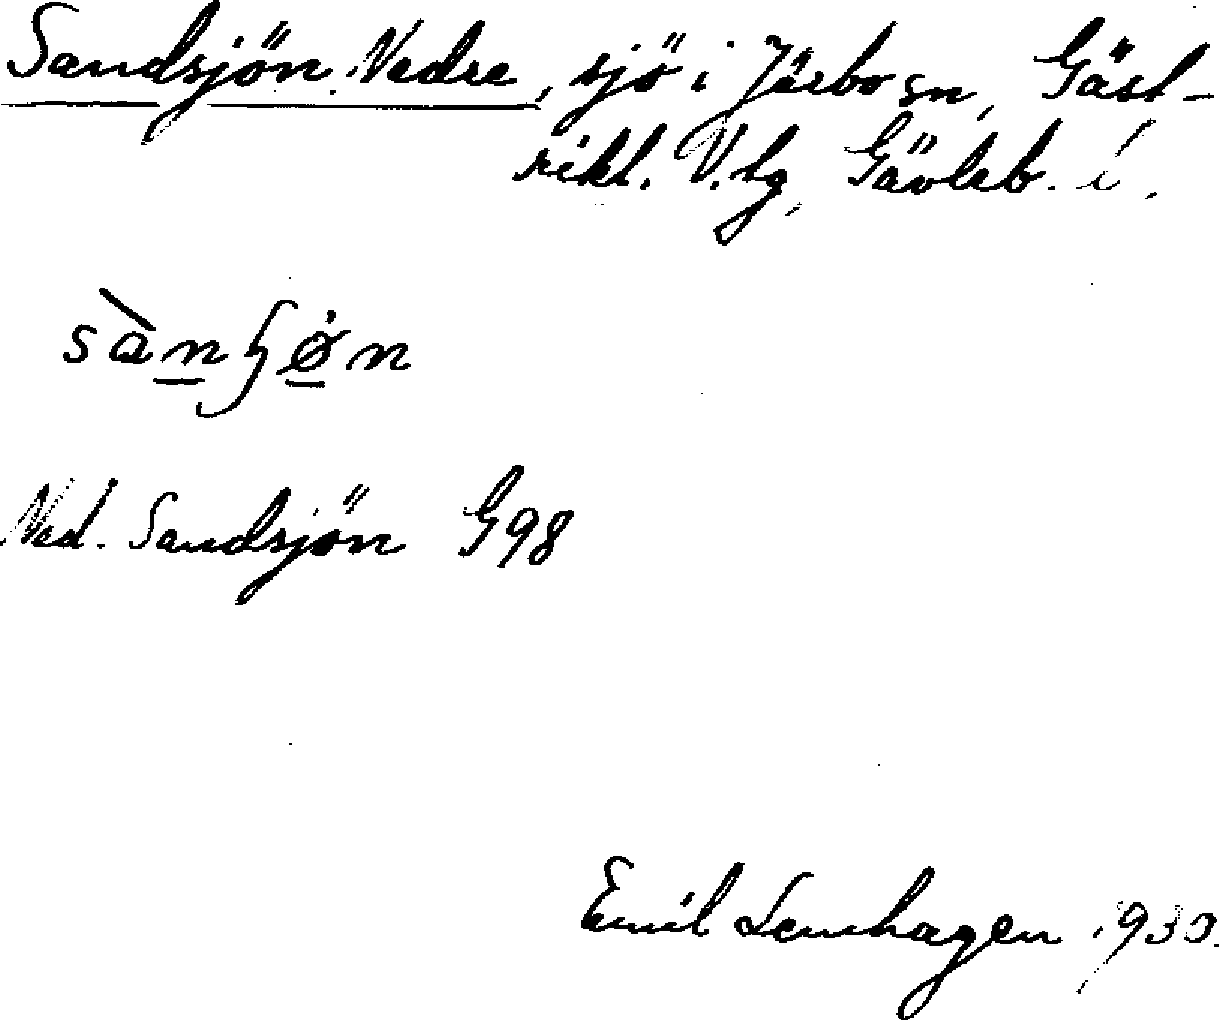 Sandsjön. Nedre, sjö i Järbo sn, Gäst-
rikl. V. tg, Gävleb. l.
Ned. Sandsjön G98
Emil Lemhagen 1930.